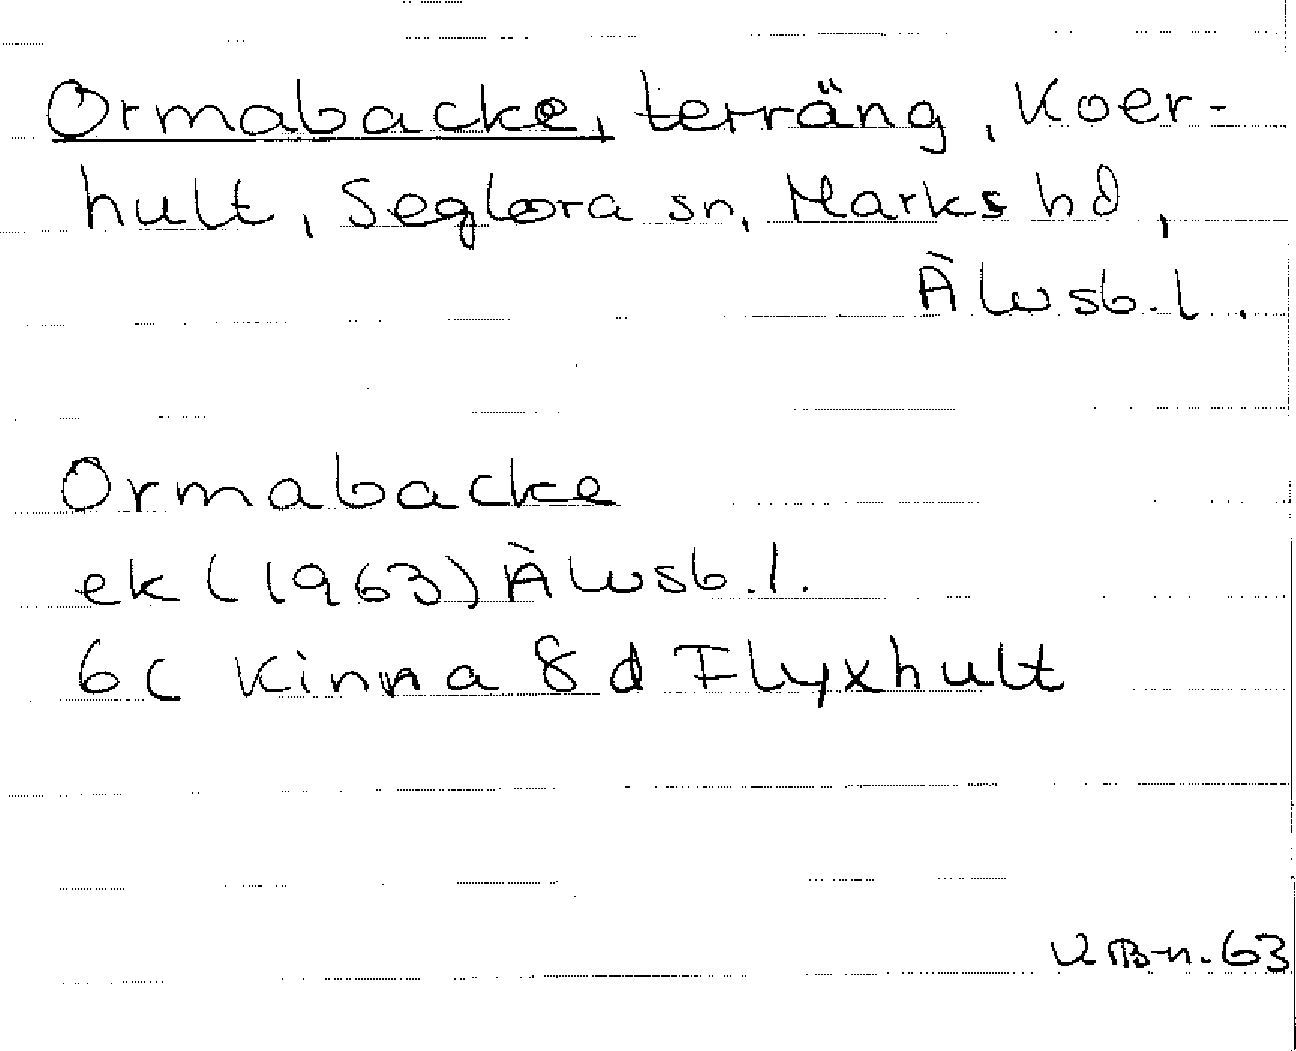 Ormabacke, terräng, Koer-
hult, Seglora sn, Marks hd,
Älvsb. l.
Ormabacke
ek (1963) Älvsb. l.
6c Kinna 8 d Flyxhult
63